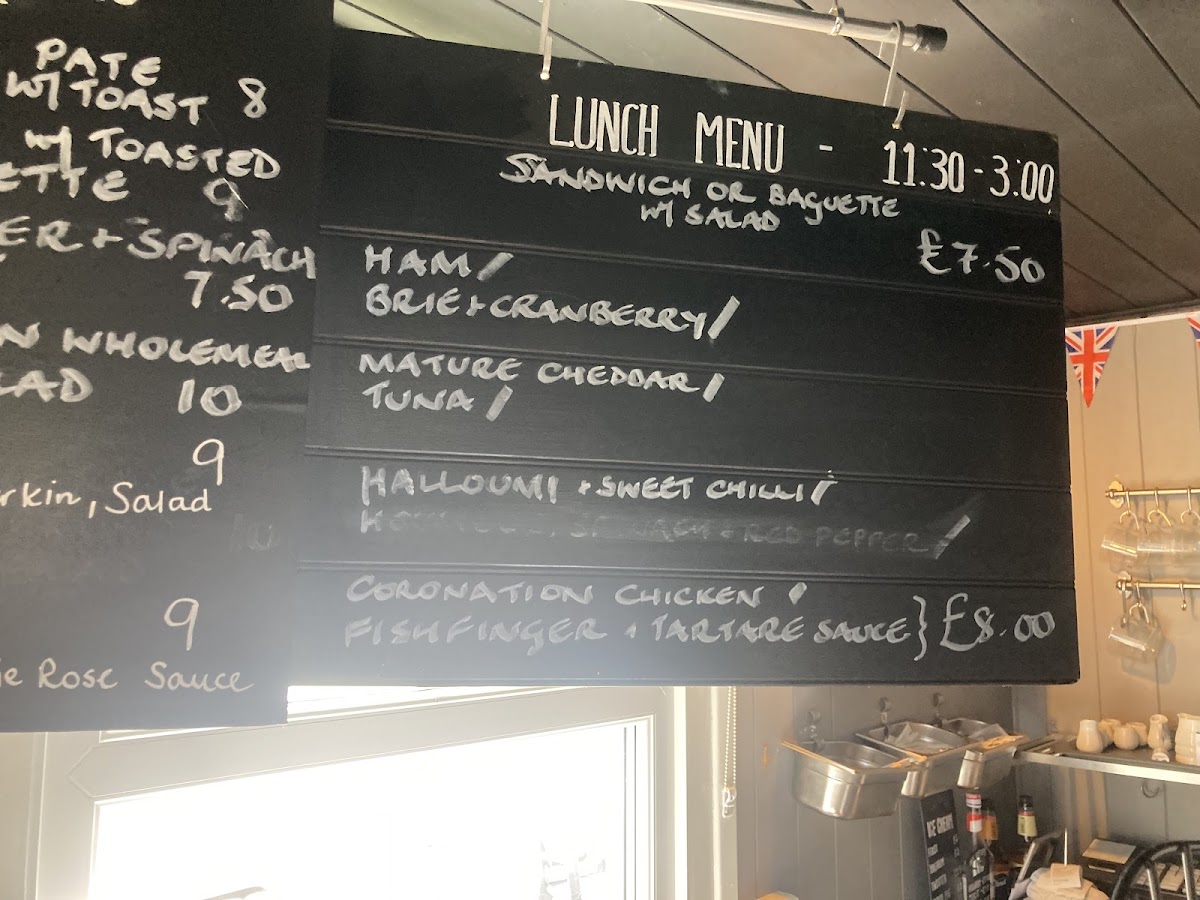 PATE
W/ TOAST 8
W/ TOASTED
ETTE 9
ER + SPINACH
7.50
N WHOLEMEAL
LAD 10
9
rkin, Salad
9
ie Rose Sauce
LUNCH MENU - 11:30 - 3:00
SANDWICH OR BAGUETTE
W/ SALAD
£7.50
HAM/
BRIE + CRANBERRY/
MATURE CHEDDAR/
TUNA/
HALLOUMI + SWEET CHILLI/
+ RED PEPPER/
CORONATION CHICKEN /
FISHFINGER + TARTARE SAUCE } £8.00
ICE CREAM